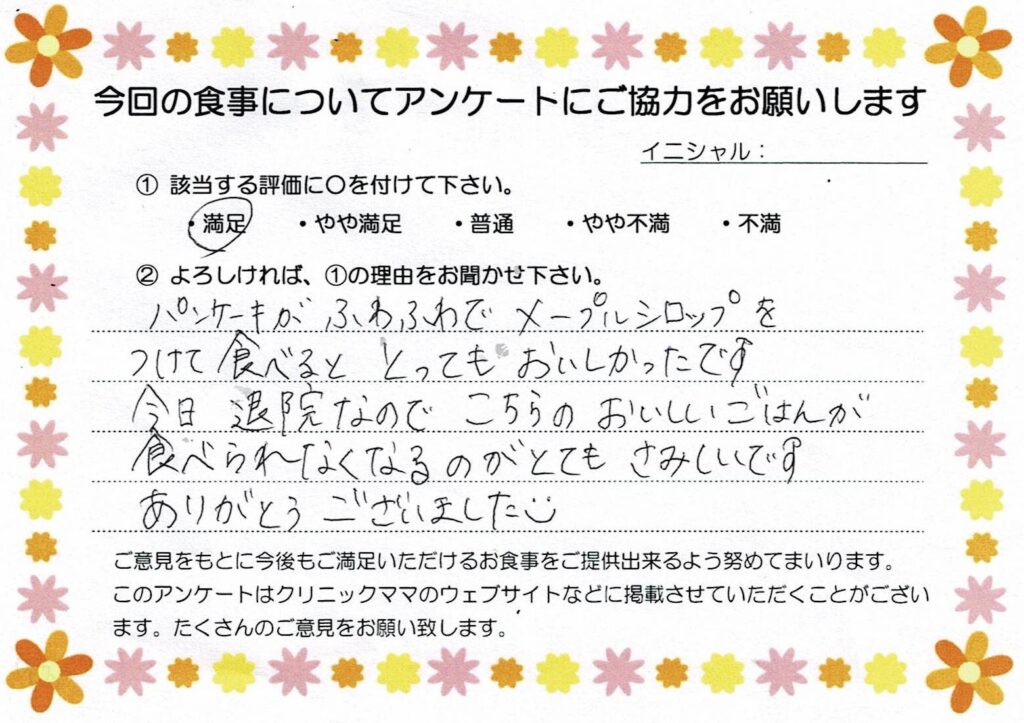 今回の食事についてアンケートにご協力をお願いします
イニシャル：
① 該当する評価に〇を付けて下さい。
・満足 ・やや満足 ・普通 ・やや不満 ・不満
② よろしければ、①の理由をお聞かせ下さい。
パンケーキが ふわふわで メープルシロップを
つけて 食べると とっても おいしかったです
今日 退院なので こちらの おいしいごはんが
食べられなくなるのがとても さみしいです
ありがとう ございました
ご意見をもとに今後もご満足いただけるお食事をご提供出来るよう努めてまいります。
このアンケートはクリニックママのウェブサイトなどに掲載させていただくことがござい
ます。たくさんのご意見をお願い致します。